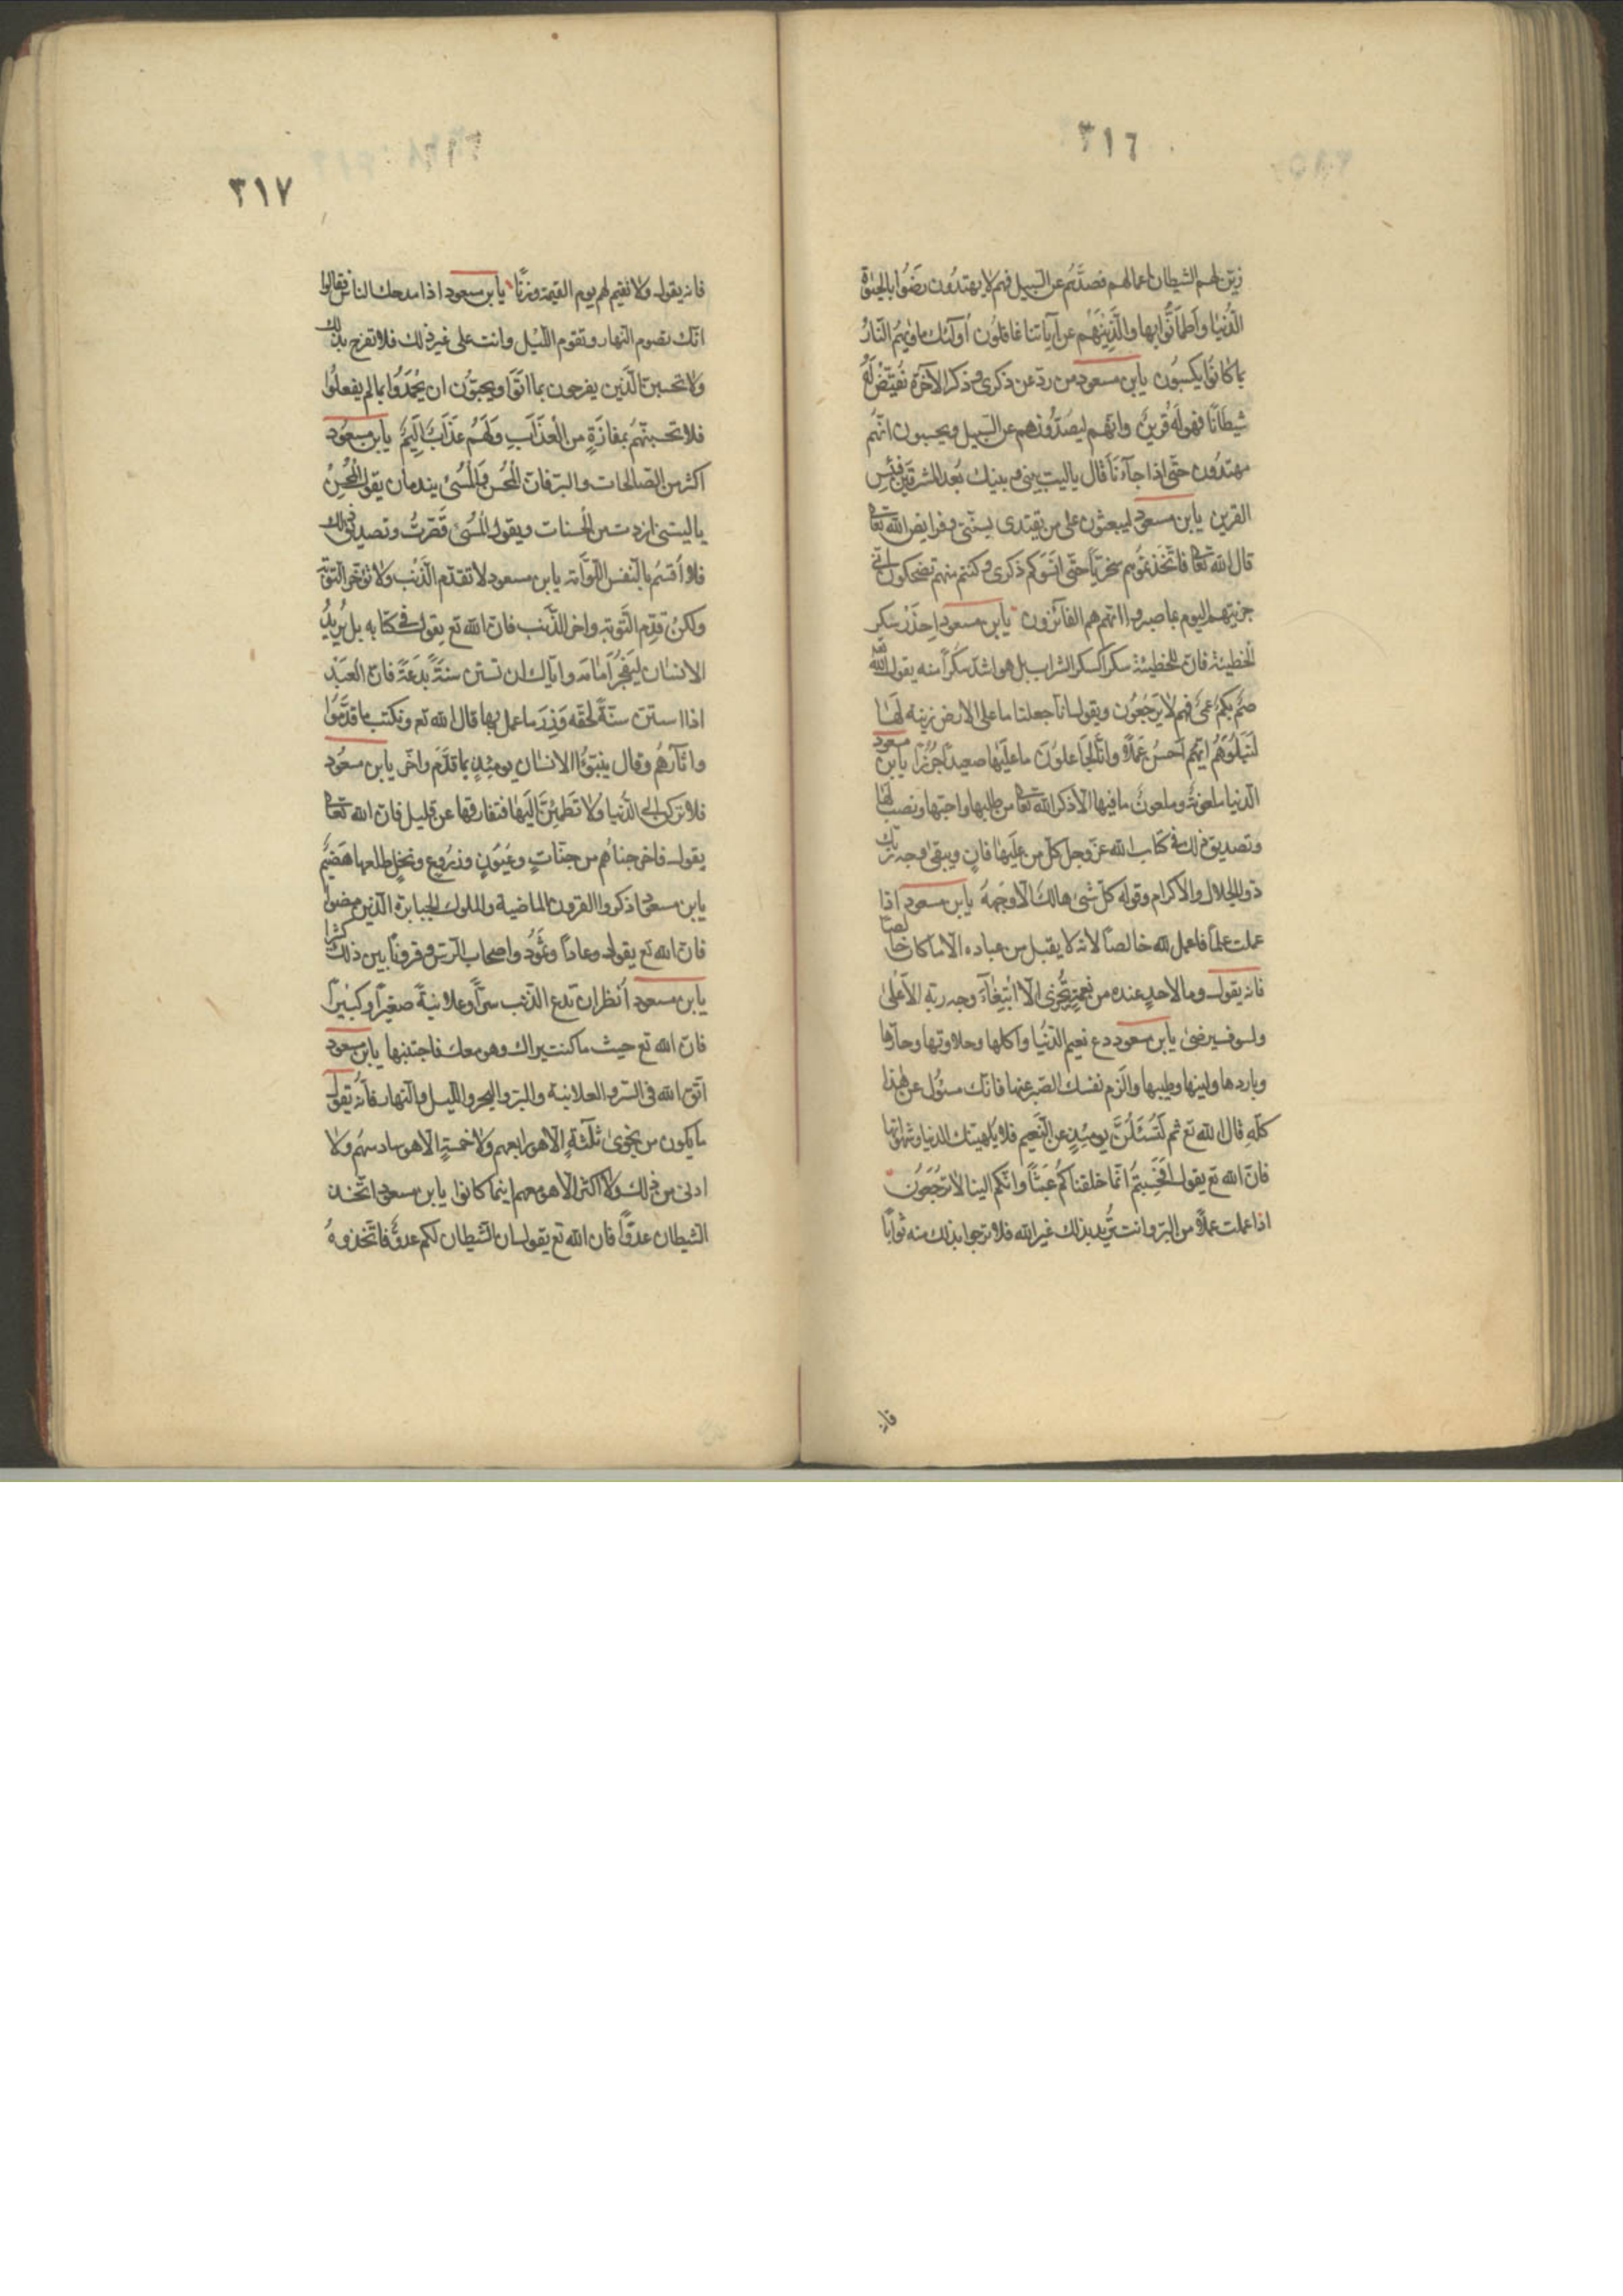 ٣١٦
زيّن لهم الشيطان اعمالهم فصدّهم عن السبيل فهم لا يهتدون رضوا بالحيوة
الدّنيا واطمأنّوا بها والّذين هم عن آياتنا غافلون أولئك مأويهم النّار
بما كانوا يكسبون يابن مسعود من ردّ عن ذكرى وذكر الآخرة نقيّض له
شيطانا فهو له قرين وانّهم ليصدّونهم عن السّبيل ويحسبون انّهم
مهتدون حتّى اذا جآءنا قال ياليت بينى وبينك بعد المشرقين فبئس
القرين يابن مسعود ليبعثون على من يقتدى بسنّتى وفرايض الله تعالى
قال الله تعالى فاتّخذتموهم سخريّا حتّى انسوكم ذكرى وكنتم منهم تضحكون انّى
جزيتهم اليوم بما صبروا انّهم هم الفآئزون يابن مسعود احذر سكر
الخطيئة فانّ للخطيئة سكرا كسكر الشراب بل هو اشدّ سكرا منه يقول الله
صمّ بكم عمى فهم لا يرجعون ويقول انّا جعلنا ما على الارض زينة لها
لنبلوهم ايّهم احسن عملا وانّا لجاعلون ما عليها صعيدا جرزا يابن مسعود
الدّنيا ملعونة وملعون ما فيها الّا ذكر الله تعالى من طلبها واحبّها ونصب لها
وتصديق ذلك فى كتاب الله عزّ وجلّ كلّ من عليها فان ويبقى وجه ربّك
ذو الجلال والاكرام وقوله كلّ شئ هالك الّا وجهه يابن مسعود اذا
عملت عملا فاعمل لله خالصا لانّه لا يقبل من عباده الّا ما كان خالصا
فانّه يقول وما لاحد عنده من نعمة تجزى الّا ابتغآء وجه ربّه الاعلى
ولسوف يرضى يابن مسعود دع نعيم الدّنيا واكلها وحلاوتها وحارّها
وباردها ولينها وطيبها والزم نفسك الصّبر عنها فانّك مسئول عن هذا
كلّه قال الله تع ثم لتسئلنّ يومئذ عن النّعيم فلا يلهينّك الدنيا وشهواتها
فانّ الله تع يقول افحسبتم انّما خلقناكم عبثا وانّكم الينا لا ترجعون
اذا عملت عملا من البرّ وانت تريد بذلك غير الله فلا ترجوا بذلك منه ثوابا
فانه
٣١٧
فانّه يقول ولا نقيم لهم يوم القيمة وزنا يابن مسعود اذا مدحك الناس فقالوا
انّك تصوم النّهار وتقوم اللّيل وانت على غير ذلك فلا تفرح بذلك
ولا تحسبنّ الّذين يفرحون بما اتوا ويحبّون ان يحمدوا بما لم يفعلوا
فلا تحسبنّهم بمفازة من العذاب ولهم عذاب اليم يابن مسعود
اكثر من الصّالحات والبرّ فانّ المحسن والمسئ يندمان يقول المحسن
ياليتنى ازددت من الحسنات ويقول المسئ قصّرت وتصديق ذلك
فلا أقسم بالنّفس اللّوّامة يابن مسعود لا تقدّم الذّنب ولا تؤخّر التّوبة
ولكن قدّم التّوبة واخّر الذّنب فانّ الله تع يقول فى كتابه بل يريد
الانسان ليفجر أمامه وايّاك ان تستن سنّة بدعة فانّ العبد
اذا استنّ سنّة لحقه وزر ما عمل بها قال الله تع ونكتب ما قدّموا
واثآرهم وقال ينبّؤا الانسان يومئذ بما قدّم واخّر يابن مسعود
فلا تركن الى الدّنيا ولا تطمئنّ اليها فتفارقها عن قليل فانّ الله تعالى
يقول فاخرجناهم من جنّات وعيون وزروع ونخل طلعها هضيم
يابن مسعود اذكروا القرون الماضية والملوك الجبابرة الّذين مضوا
فانّ الله تع يقول وعادا وثمود واصحاب الرّسّ وقرونا بين ذلك كثيرا
يابن مسعود أنظر ان تدع الذّنب سرّا وعلانية صغيرا وكبيرا
فانّ الله تع حيث ما كنت يراك وهو معك فاجتنبها يابن مسعود
اتّق الله فى السّرّ والعلانية والبرّ والبحر واللّيل والنّهار فانّه يقول
ما يكون من نجوى ثلثة الّا هو رابعهم ولا خمسة الّا هو سادسهم ولا
ادنى من ذلك ولا اكثر الّا هو معهم اينما كانوا يابن مسعود اتّخذ
الشّيطان عدوّا فانّ الله تع يقول ان الشّيطان لكم عدوّ فاتّخذوه